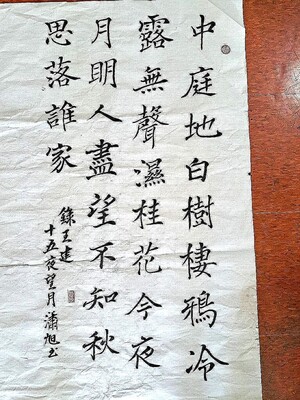 中庭地白樹棲鴉冷
露無聲濕桂花今夜
月明人盡望不知秋
思落誰家
錄王建
十五夜望月瀟旭书